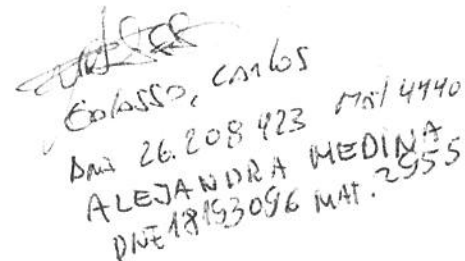 Galasso, Carlos
DNI 26.208.423 Mat 4440
ALEJANDRA MEDINA
DNI 18153096 MAT. 2955